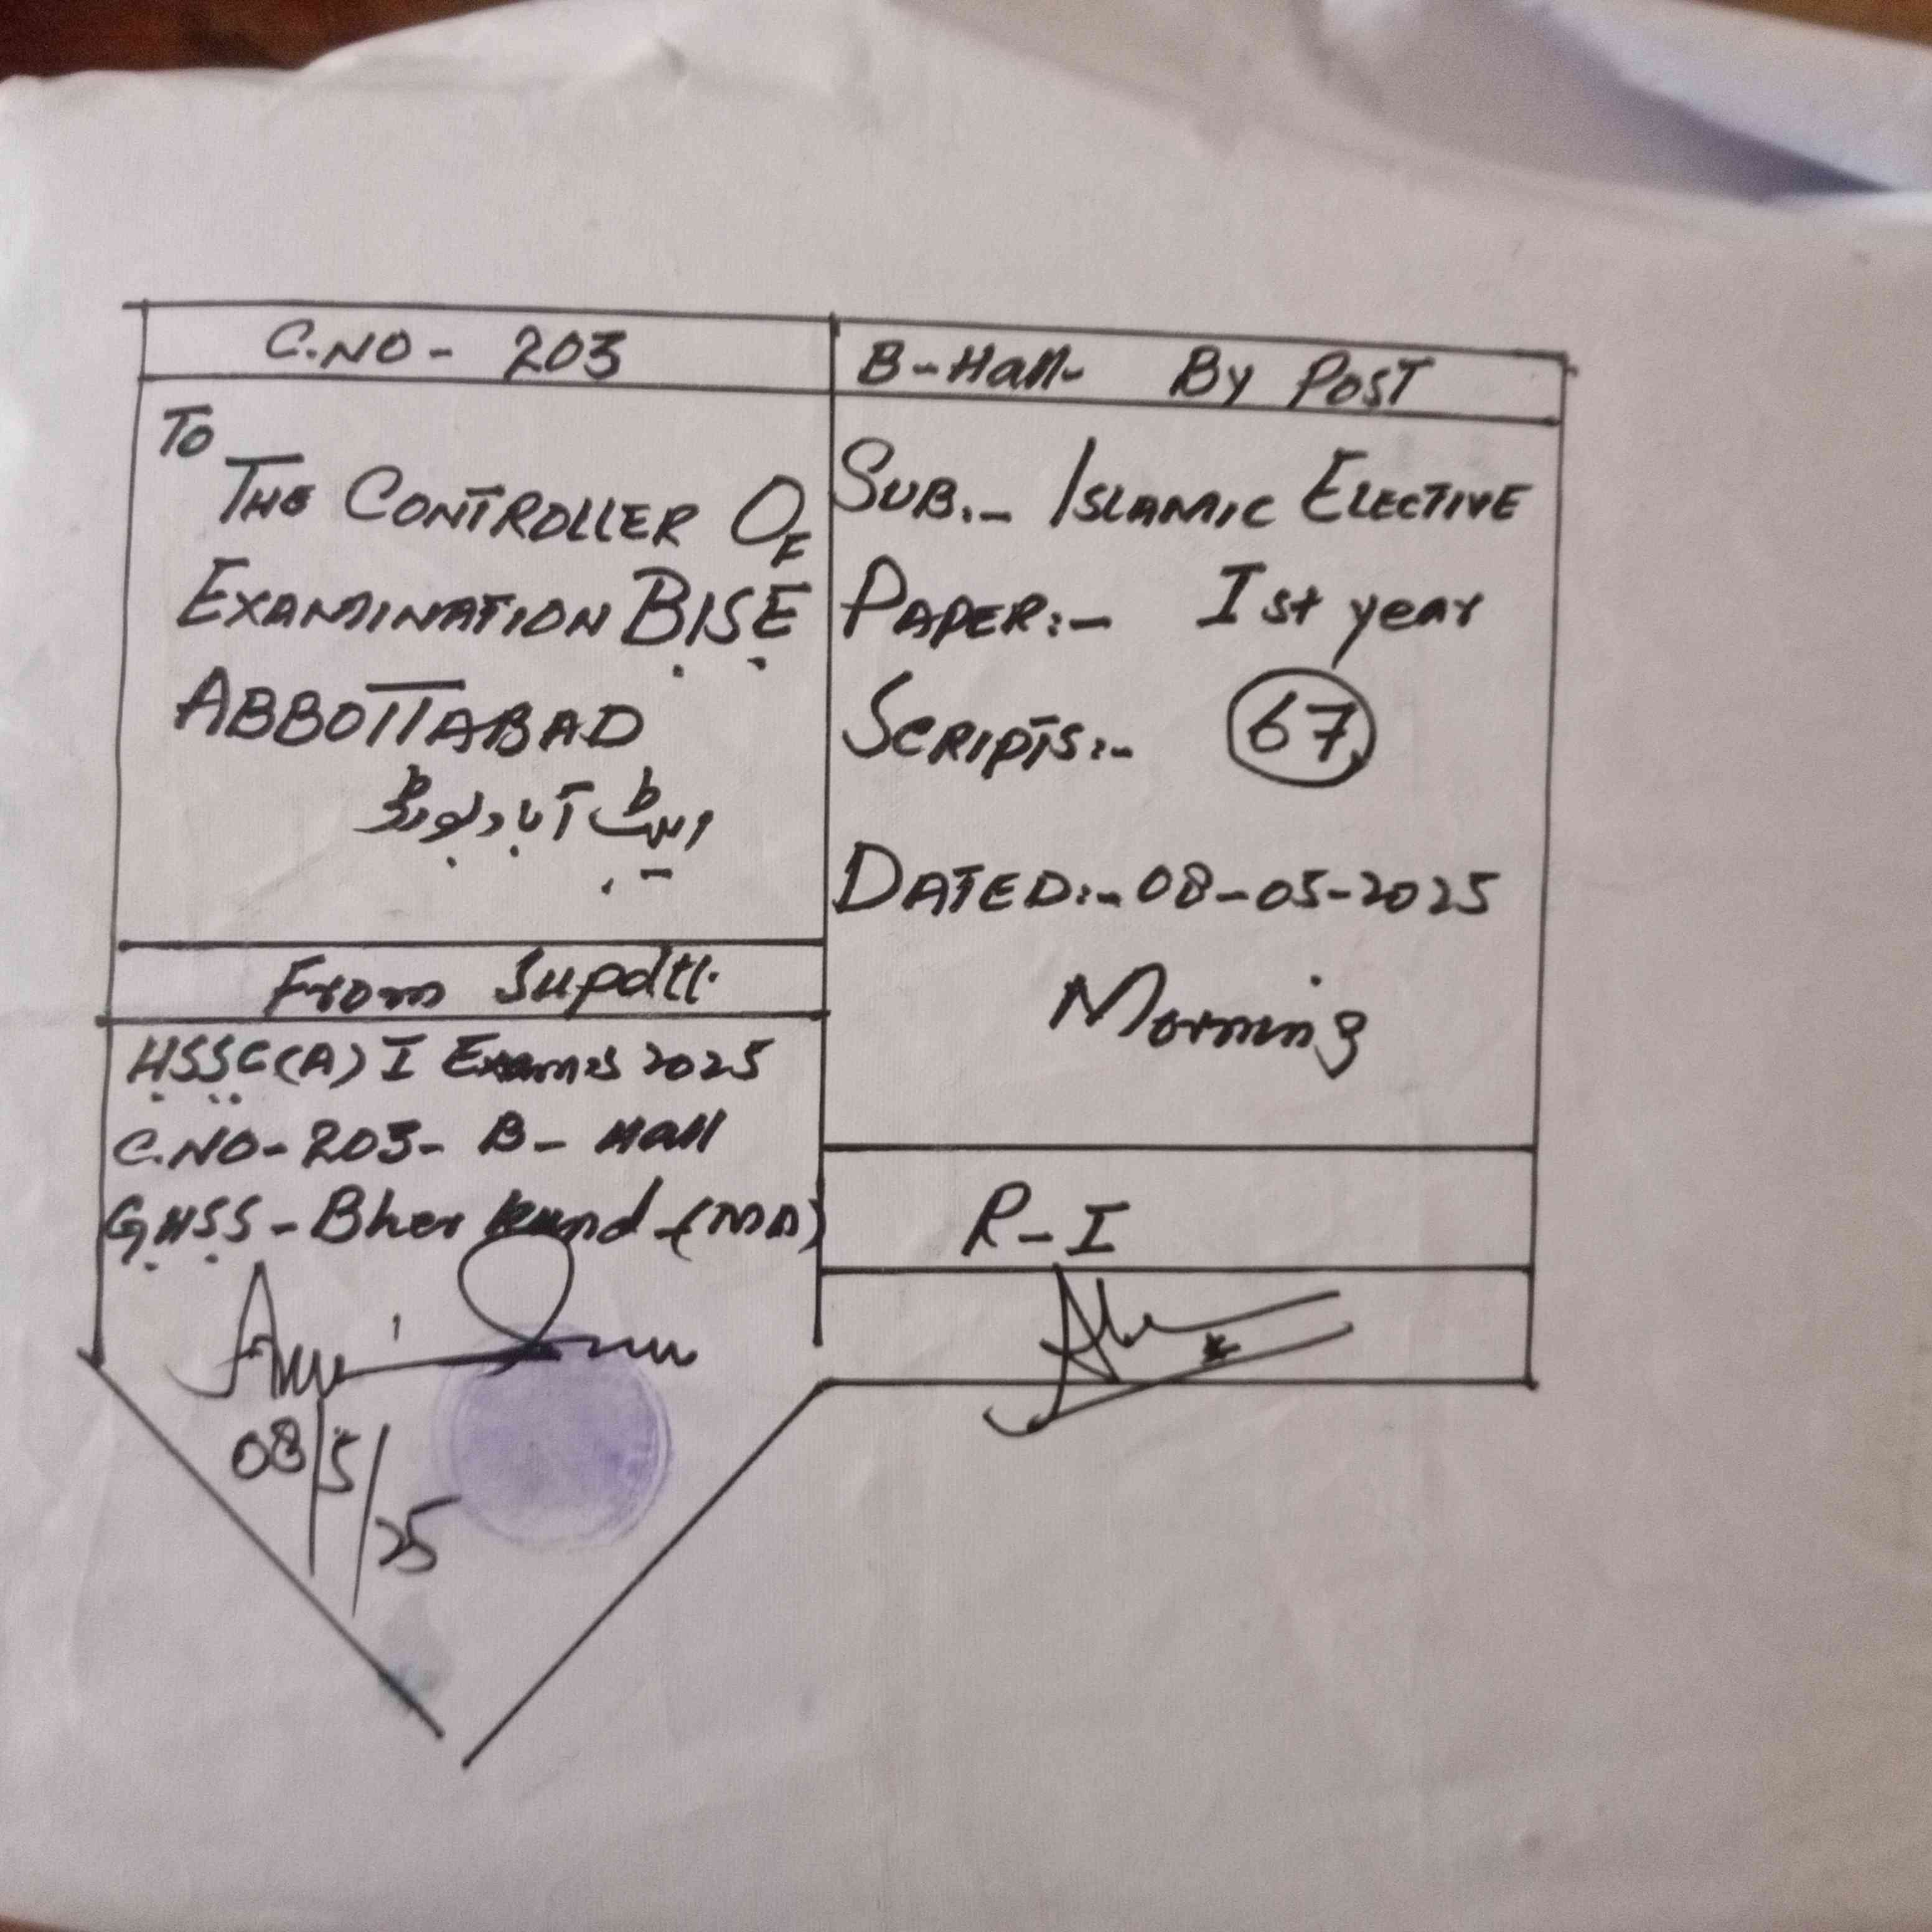 C.NO - 203
To
THE CONTROLLER OF
EXAMINATION BISE
ABBOTTABAD
ایبٹ آباد بورڈ
From Supdtt.
HSSC(A) I Exams 2025
C.NO-203- B- Hall
GHSS - Bher Kund - (MA)
08/5/25
B-Hall- By POST
SUB.- ISLAMIC ELECTIVE
PAPER:- Ist year
SCRIPTS:- 67
DATED:- 08-05-2025
Morning
R-I